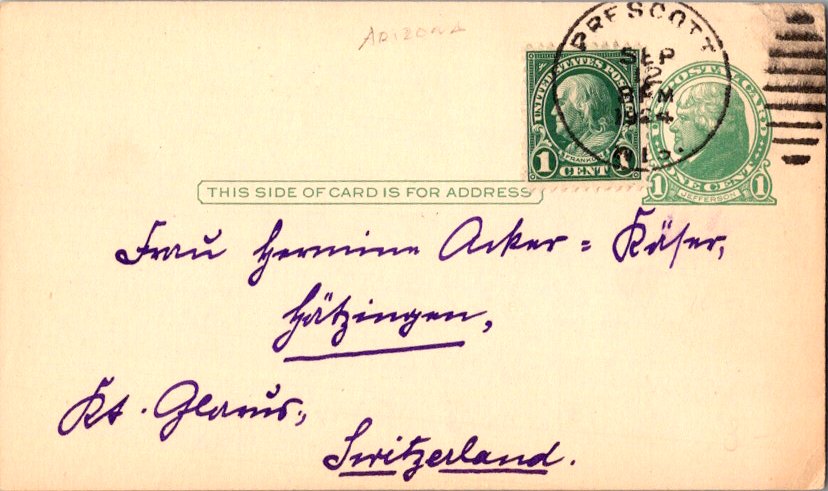 ARIZONA
PRESCOTT
SEP
12
PM
1924
UNITED STATES POSTAGE
FRANKLIN
1 CENT
U.S. POSTAL CARD
JEFFERSON
1 ONE CENT 1
THIS SIDE OF CARD IS FOR ADDRESS
Frau Hermine Acker = Käser,
Hätzingen,
Kt. Glarus,
Switzerland.